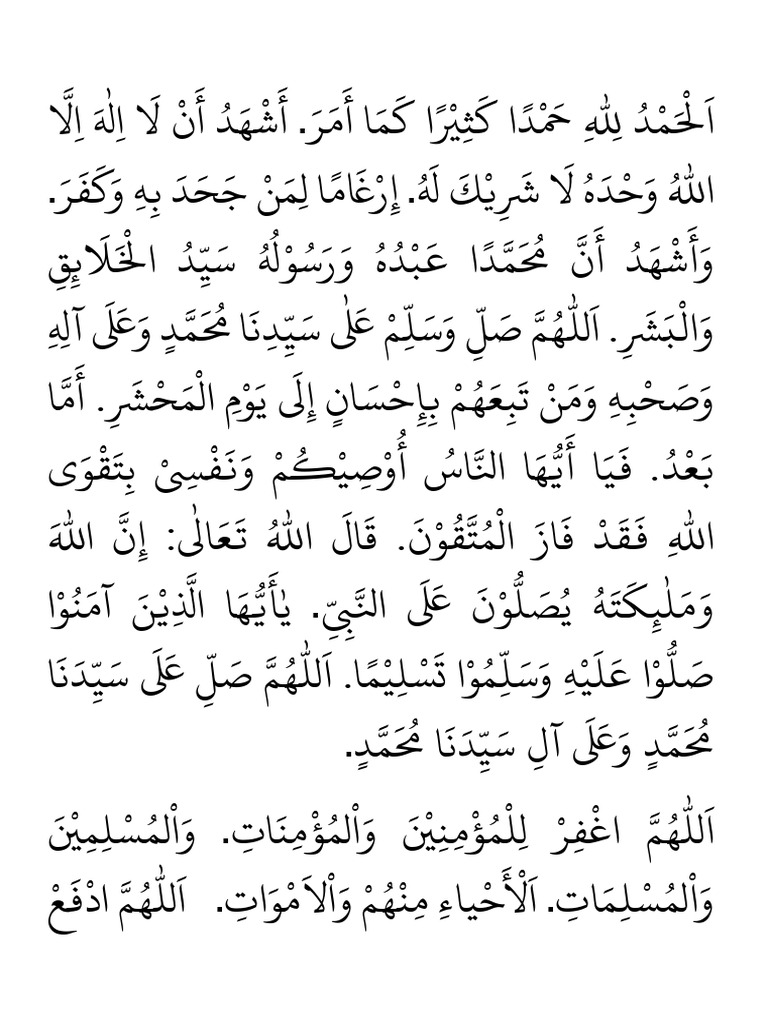 اَلْحَمْدُ لِلهِ حَمْدًا كَثِيْرًا كَمَا أَمَرَ. أَشْهَدُ أَنْ لَا اِلٰهَ اِلَّا
اللهُ وَحْدَهُ لَا شَرِيْكَ لَهُ. إِرْغَامًا لِمَنْ جَحَدَ بِهِ وَكَفَرَ.
وَأَشْهَدُ أَنَّ مُحَمَّدًا عَبْدُهُ وَرَسُوْلُهُ سَيِّدُ الْخَلَائِقِ
وَالْبَشَرِ. اَللّٰهُمَّ صَلِّ وَسَلِّمْ عَلٰى سَيِّدِنَا مُحَمَّدٍ وَعَلَى آلِهِ
وَصَحْبِهِ وَمَنْ تَبِعَهُمْ بِإِحْسَانٍ إِلَى يَوْمِ الْمَحْشَرِ. أَمَّا
بَعْدُ. فَيَا أَيُّهَا النَّاسُ أُوْصِيْكُمْ وَنَفْسِيْ بِتَقْوَى
اللهِ فَقَدْ فَازَ الْمُتَّقُوْنَ. قَالَ اللهُ تَعَالٰى: إِنَّ اللهَ
وَمَلٰئِكَتَهُ يُصَلُّوْنَ عَلَى النَّبِيِّ. يٰأَيُّهَا الَّذِيْنَ آمَنُوْا
صَلُّوْا عَلَيْهِ وَسَلِّمُوْا تَسْلِيْمًا. اَللّٰهُمَّ صَلِّ عَلَى سَيِّدَنَا
مُحَمَّدٍ وَعَلَى آلِ سَيِّدَنَا مُحَمَّدٍ.
اَللّٰهُمَّ اغْفِرْ لِلْمُؤْمِنِيْنَ وَاْلمُؤْمِنَاتِ. وَاْلمُسْلِمِيْنَ
وَاْلمُسْلِمَاتِ. اَلْأَحْياءِ مِنْهُمْ وَاْلاَمْوَاتِ. اَللّٰهُمَّ ادْفَعْ